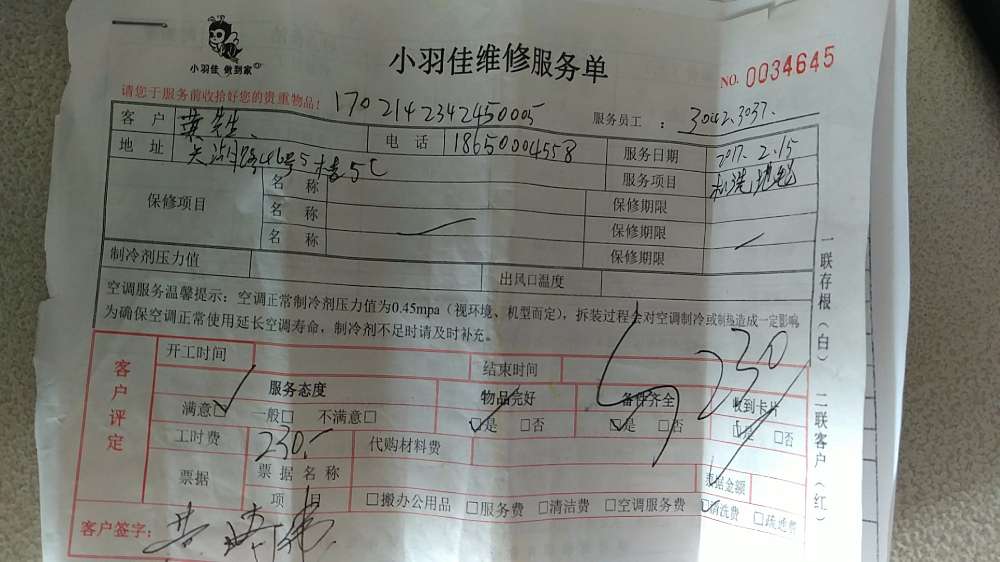 小羽佳 做到家
小羽佳维修服务单
NO. 0034645
请您于服务前收拾好您的贵重物品! 1702142342450005 服务员工: 3042.3037.
客户 黄先生 电话 18650004558 服务日期 2017.2.15
地址 46号5楼5C 服务项目 机洗地毯
保修项目 名称 保修期限
名称 保修期限
名称 保修期限
制冷剂压力值 出风口温度
空调服务温馨提示:空调正常制冷剂压力值为0.45mpa(视环境、机型而定),拆装过程会对空调制冷或制热造成一定影响
为确保空调正常使用延长空调寿命,制冷剂不足时请及时补充。
230
客户评定
开工时间 结束时间
服务态度 物品完好 备件齐全 收到卡片
满意□ 一般□ 不满意□ □是 □否 □是 □否 □是 □否
工时费 230.- 代购材料费
票据 票据名称 票据金额
项目 □搬办公用品 □服务费 □清洁费 □空调服务费 □清洗费 □疏通费
客户签字:
一联存根(白) 二联客户(红)